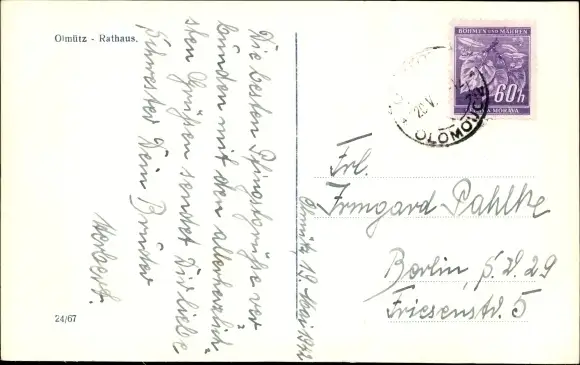 Olmütz - Rathaus.
Die besten Pfingstgrüße ver
bunden mit den allerherzlich
sten Grüßen sendet Dir liebe
Schwester Dein Bruder
Herbert.
24/67
Olmütz, 19. Mai 1942
BÖHMEN UND MÄHREN
60h
ČECHY A MORAVA
20.V.
OLOMOUC
Frl.
Irmgard Pahlke
Berlin, S.W. 29
Friesenstr. 5